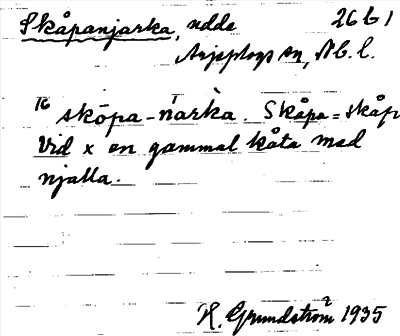 Skåpanjarka, udde 26 b 1
Arjeplogs sn, Nb. l.
16 skōpa-ńarka. Skåpa = skåp
Vid x en gammal kåta med
njalla.
H. Grundström 1935